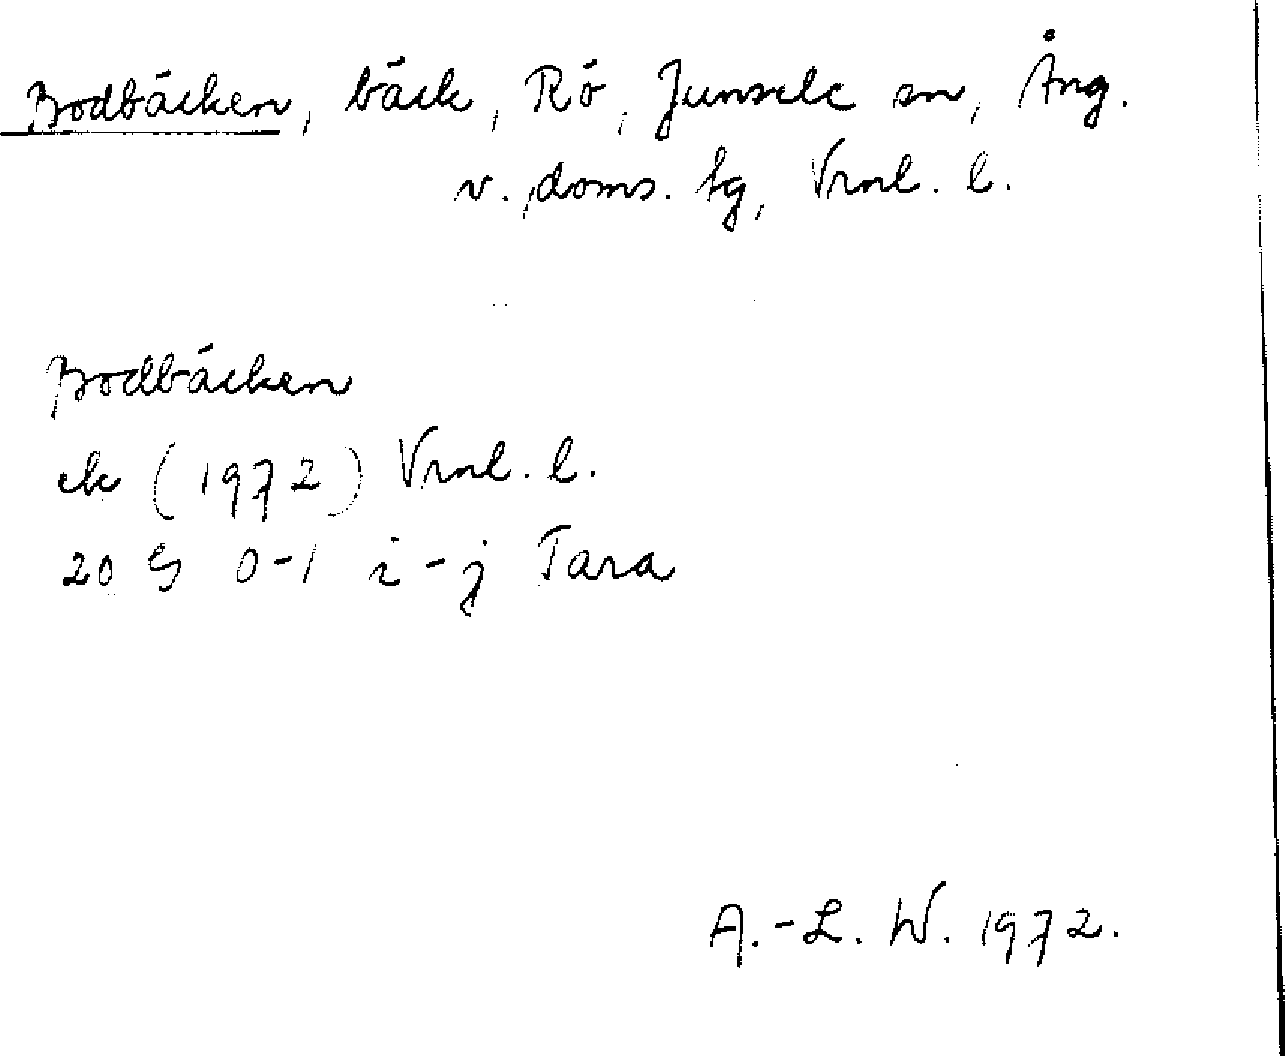 Bodbäcken, bäck, Rö, Junsele sn, Ång.
v. doms. tg, Vrnl. l.
Bodbäcken
ek (1972) Vrnl. l.
20 G 0-1 i-j Tara
A.-L. W. 1972.